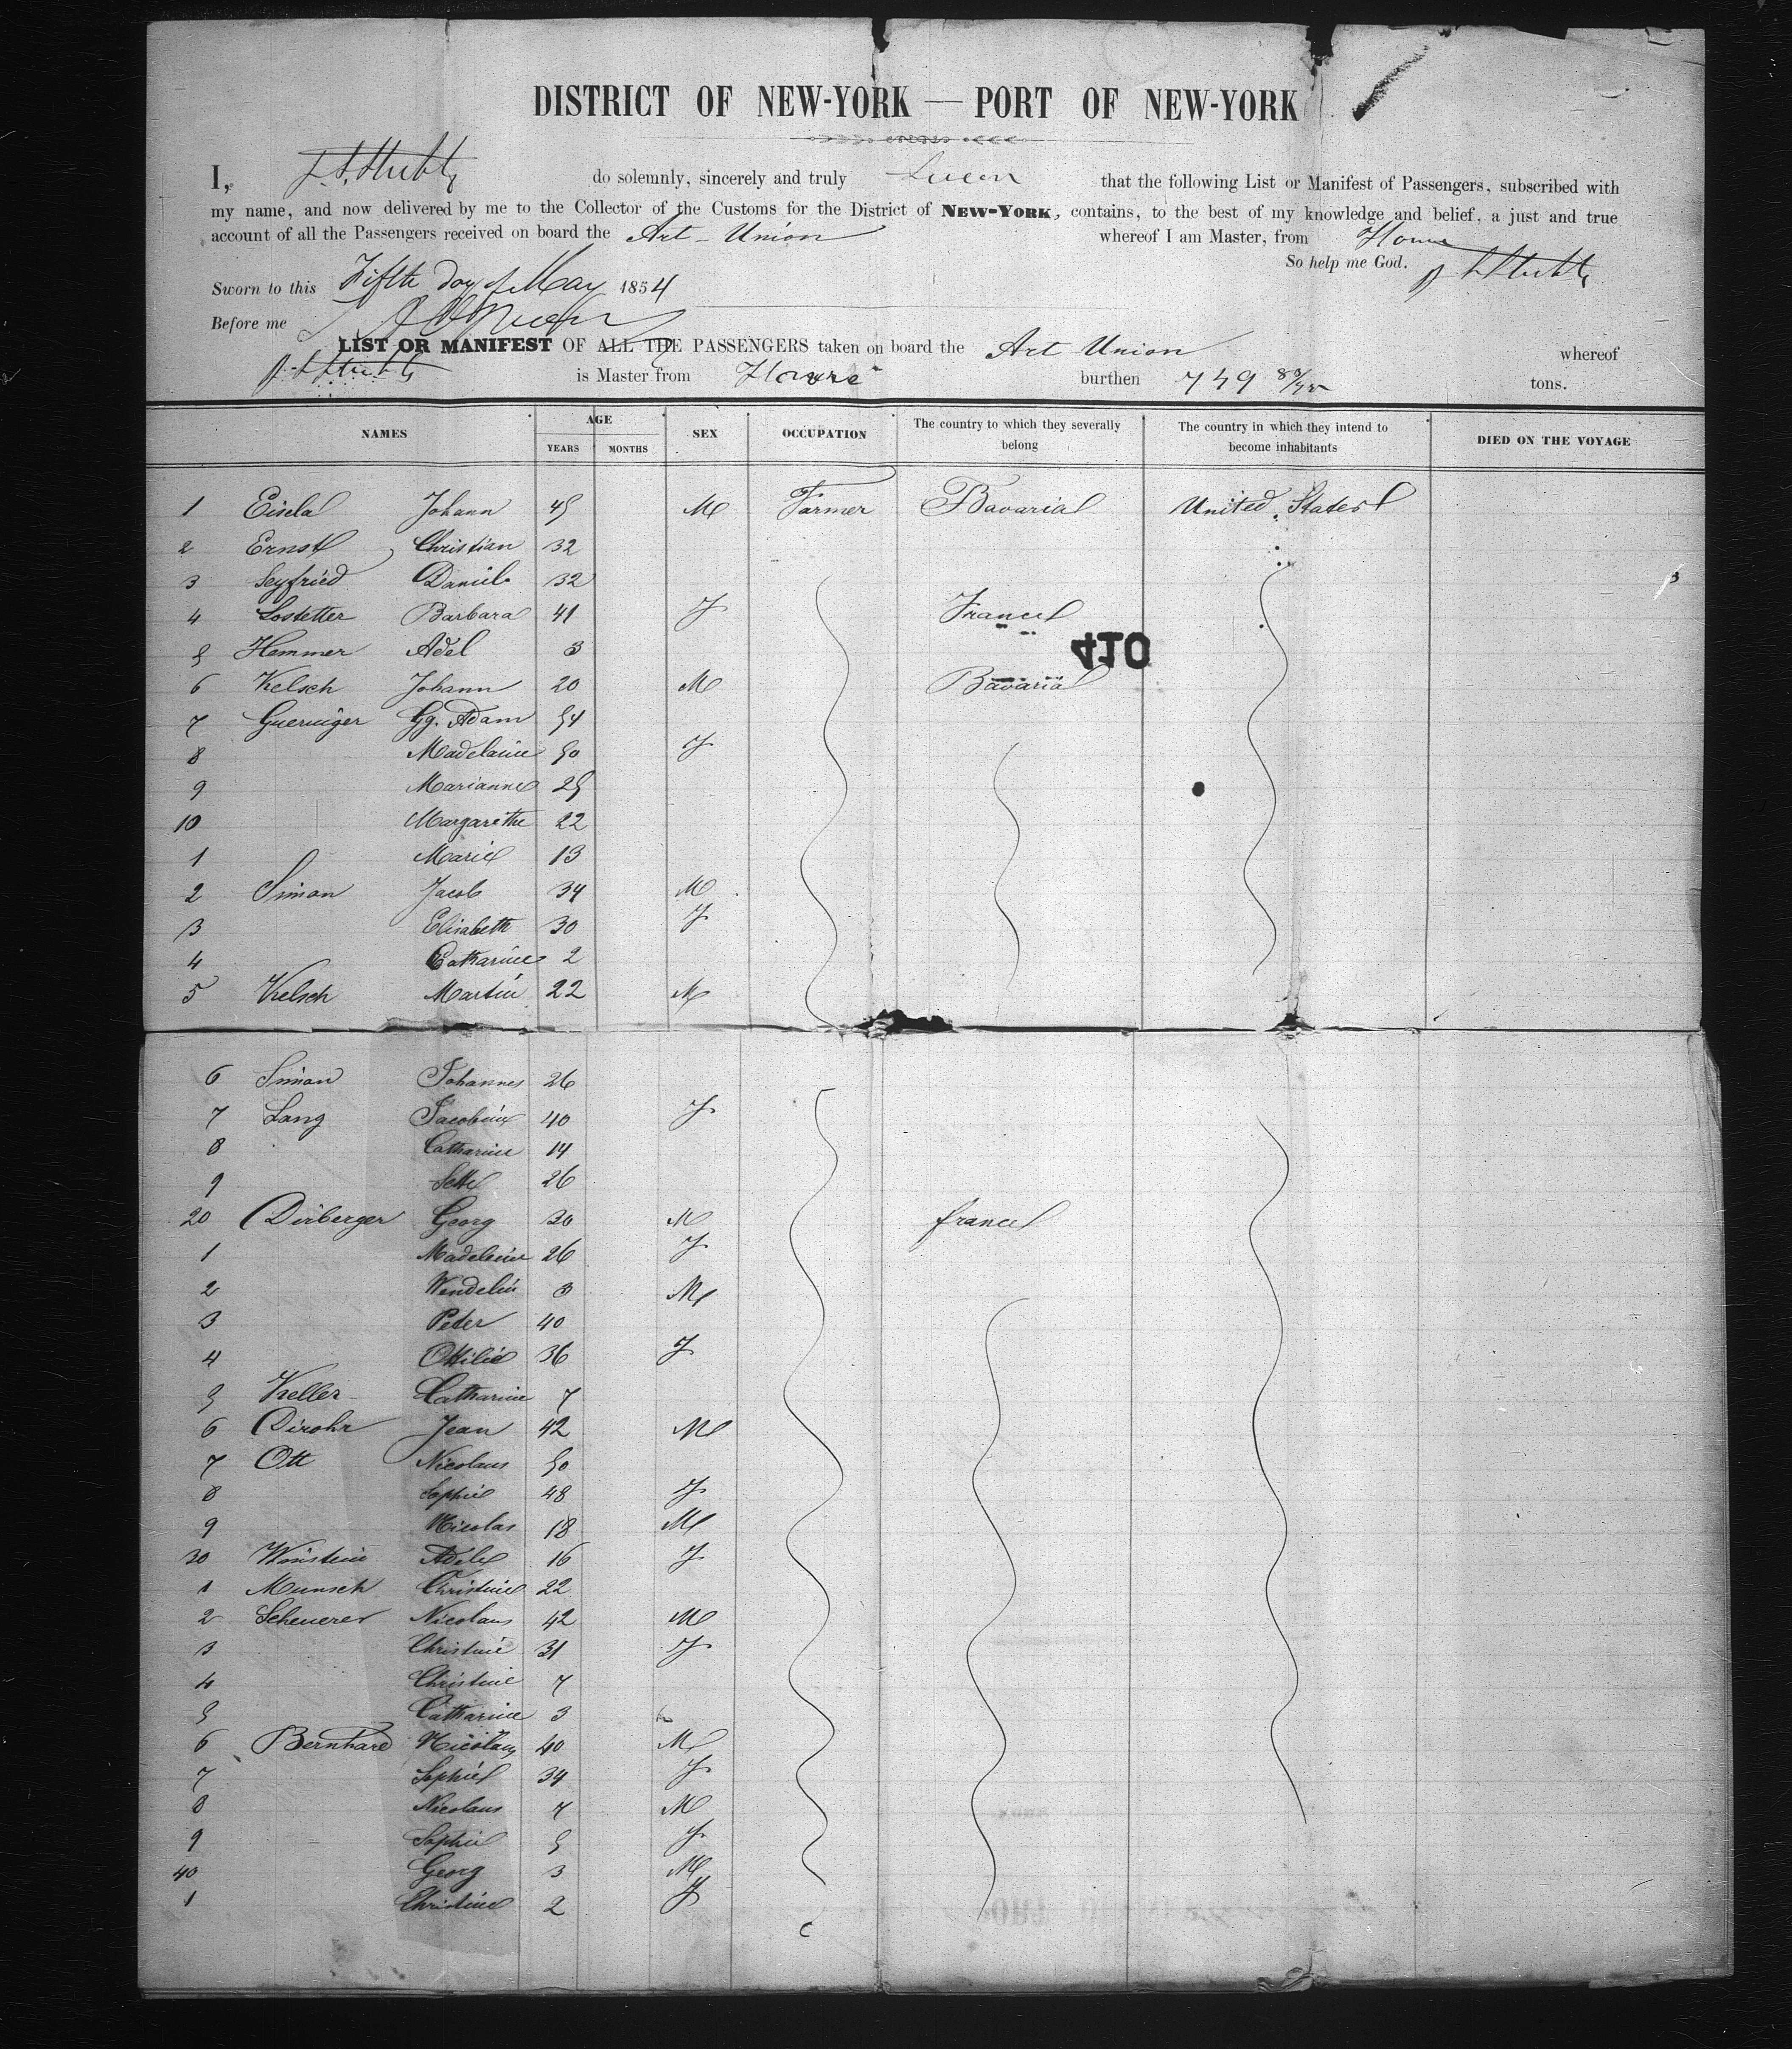 DISTRICT OF NEW-YORK — PORT OF NEW-YORK
I, do solemnly, sincerely and truly Swear that the following List or Manifest of Passengers, subscribed with
my name, and now delivered by me to the Collector of the Customs for the District of NEW-YORK, contains, to the best of my knowledge and belief, a just and true
account of all the Passengers received on board the Art-Union whereof I am Master, from Havre
So help me God.
Sworn to this Fifth day of May 1854
Before me
LIST OR MANIFEST OF ALL THE PASSENGERS taken on board the Art Union whereof
is Master from Havre burthen 749 tons.
NAMES AGE YEARS MONTHS SEX OCCUPATION The country to which they severally belong The country in which they intend to become inhabitants DIED ON THE VOYAGE
1 Eisela Johann 45 M Farmer Bavaria United States
2 Ernst Christian 32
3 Seyfried Daniel 32
4 Lostetter Barbara 41 F France
5 Hemmer Adel 3
410
6 Kelsch Johann 20 M Bavaria
7 Gg. Adam 54
8 Madelaine 50 F
9 Marianne 25
10 Margarethe 22
1 Marie 13
2 Simon Jacob 34 M
3 Elisabeth 30 F
4 Catharine 2
5 Kelsch Martin 22 M
6 Simon Johannes 26
7 Lang Jacobine 40 F
8 Catharine 14
9 26
20 Dirberger Georg 30 M france
1 Madeleine 26 F
2 Wendelin 3 M
3 Peter 40
4 Ottilie 36 F
5 Keller Catharine 7
6 Dirohr Jean 42 M
7 Ott Nicolaus 50
8 Sophie 48 F
9 Nicolas 18 M
30 Weinstein Adele 16 F
1 Munsch Christine 22
2 Scheuerer Nicolaus 42 M
3 Christine 31 F
4 Christine 7
5 Catharine 3
6 Bernhard Nicolaus 40 M
7 Sophie 34 F
8 Nicolaus 7 M
9 Sophie 5 F
40 Georg 3 M
1 Christine 2 F